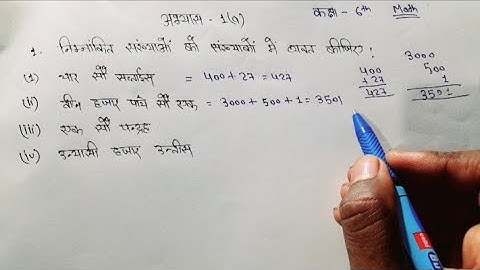 अभ्यास - 1(a)
कक्षा - 6th Math
1. निम्नांकित संख्याओं को संख्याओं में व्यक्त कीजिए :
(i) चार सौ सत्ताईस = 400 + 27 = 427
(ii) तीन हजार पांच सौ एक = 3000 + 500 + 1 = 3501
(iii) एक सौ पन्द्रह
(iv) उन्यासी हजार उन्तीस
400
+ 27
427
3000
500
1
3501